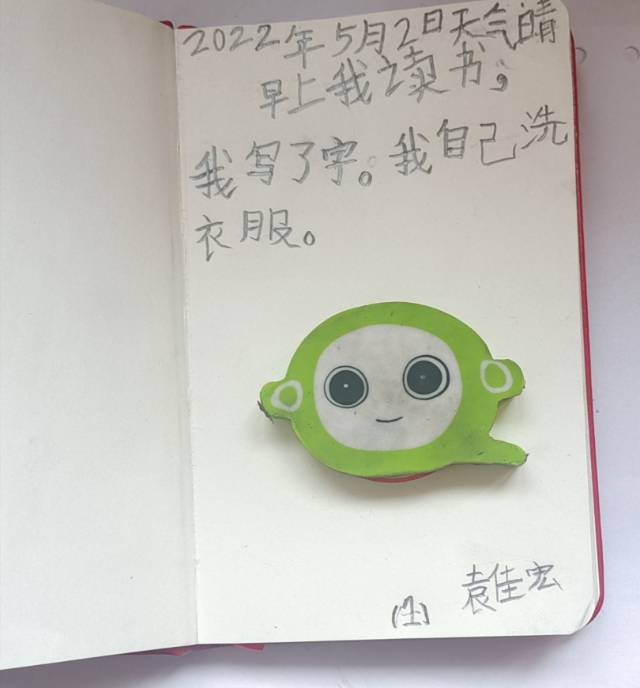 2022年5月2日天气晴
早上我读书，
我写了字。我自己洗
衣服。
(1)
袁佳宏